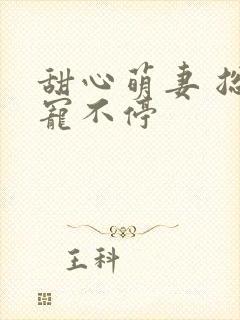 甜心萌妻 
宠不停
王科